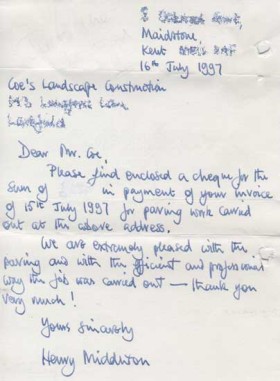 Maidstone,
Kent
16th July 1997
Coe's Landscape Construction
Dear Mr. Coe,
Please find enclosed a cheque for the
sum of in payment of your invoice
of 15th July 1997 for paving work carried
out at the above address.
We are extremely pleased with the
paving and with the efficient and professional
way the job was carried out — thank you
very much!
Yours sincerely
Henry Middleton